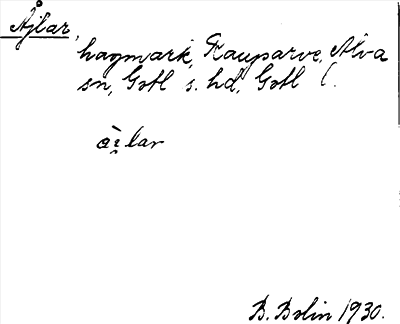 Åjlar,
hagmark, Kauparve, Alva
sn, Gotl s. hd, Gotl (.
àı̯lar
B. Bolin 1930.